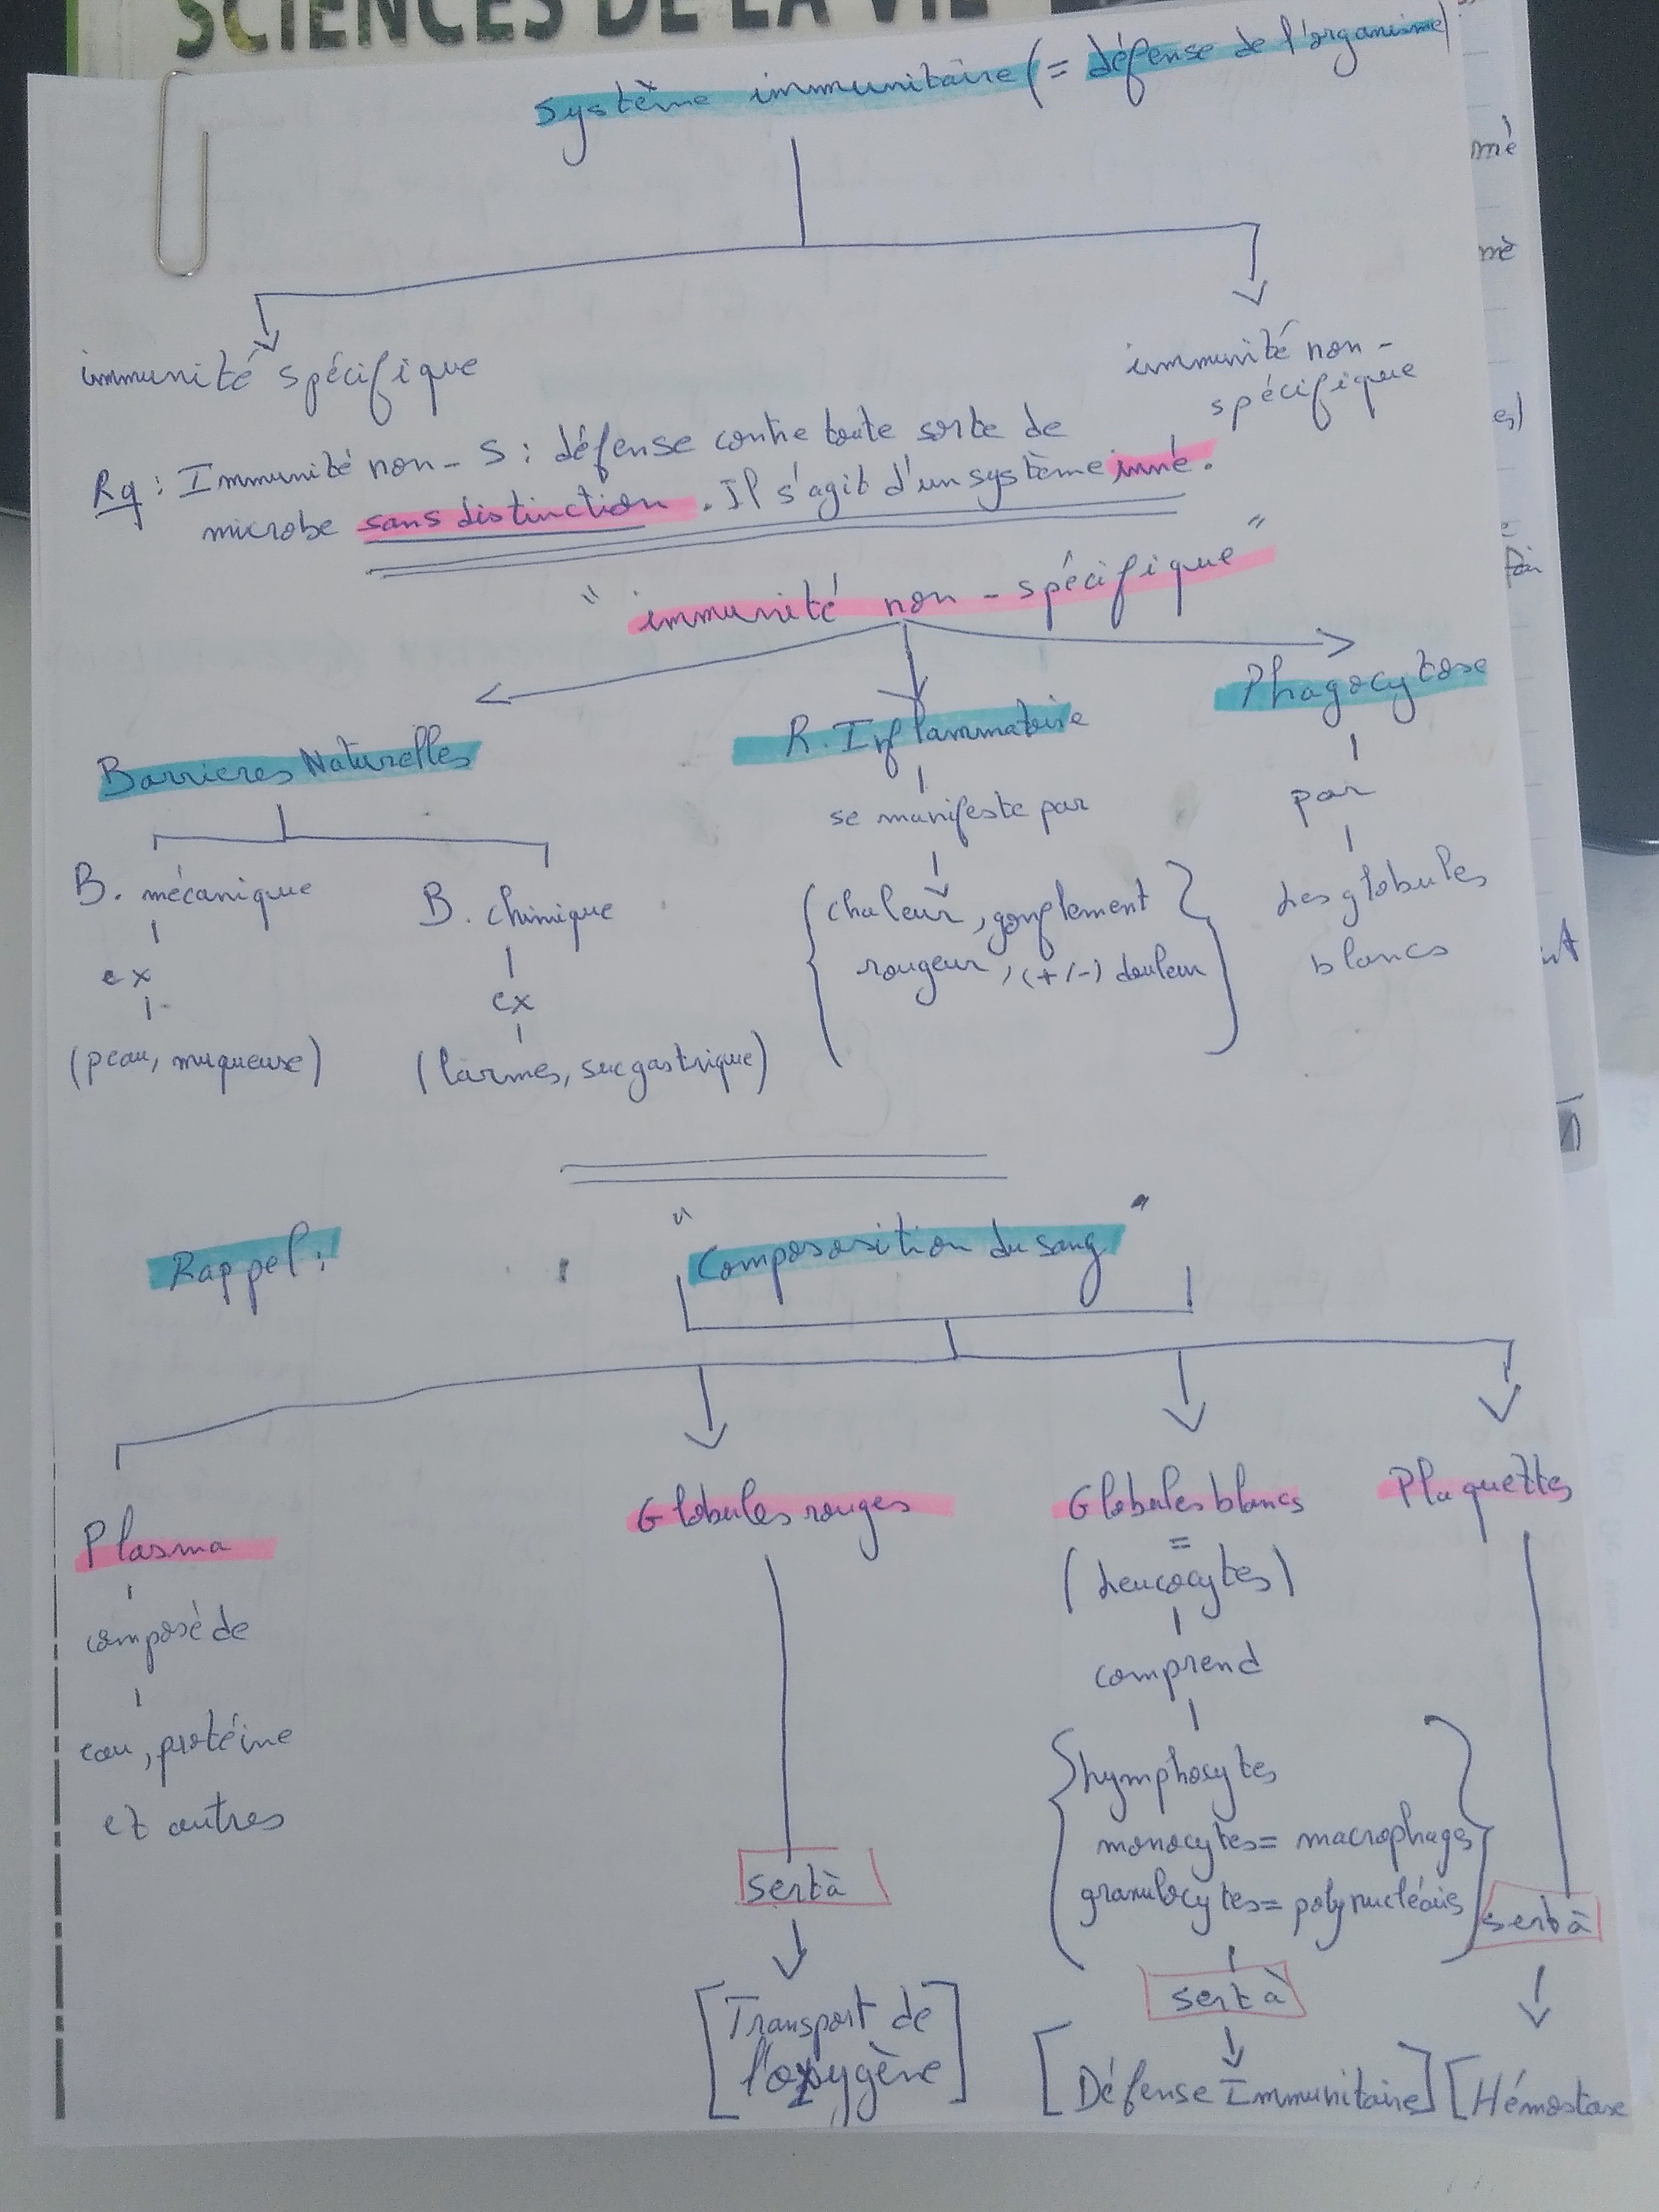 SCIENCES DE LA VIE
Système immunitaire (= défense de l'organisme)
immunité spécifique
immunité non-
spécifique
Rq : Immunité non-S : défense contre toute sorte de
microbe sans distinction. Il s'agit d'un système inné.
"immunité non-spécifique"
Barrieres Naturelles
R. Inflammatoire
Phagocytose
se manifeste par
par
B. mécanique
B. chimique
ex
ex
(peau, muqueuse)
(larmes, suc gastrique)
{chaleur, gonflement}
rougeur, (+/-) douleur
Les globules
blancs
Rappel :
"Compososition du sang"
Plasma
Globules rouges
Globules blancs
Plaquettes
=
(Leucocytes)
composé de
comprend
eau, protéine
et autres
{Lymphocytes
monocytes = macrophages
granulocytes = polynucléaires}
sert à
sert à
sert à
[Transport de
l'oxygène]
[Défense Immunitaire]
[Hémostase
mè
mè
es)